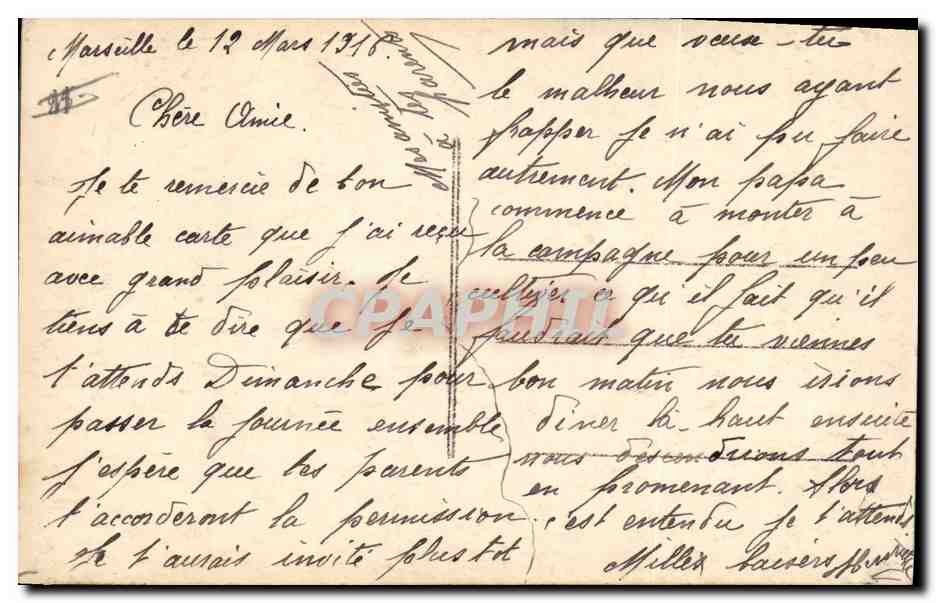 Marseille le 12 Mars 1918
11-
Chère Amie.
Je te remercie de ton
aimable carte que j'ai reçu
avec grand plaisir. Je
tiens à te dire que je
t'attends Dimanche pour
passer la journée ensemble
j'espère que tes parents
t'accorderont la permission.
Je t'aurais invité plus tot
mais que veux-tu
le malheur nous ayant
frapper je n'ai pu faire
autrement. Mon papa
commence à monter à
la campagne pour un peu
cultiver ce qu'il fait qu'il
faudrait que tu viennes
bon matin nous irions
diner là-haut ensuite
nous descendrions tout
en promenant. Alors
c'est entendu je t'attends
Milles baisers
Mes amitiés
à tes
Parents
CPAPHIL